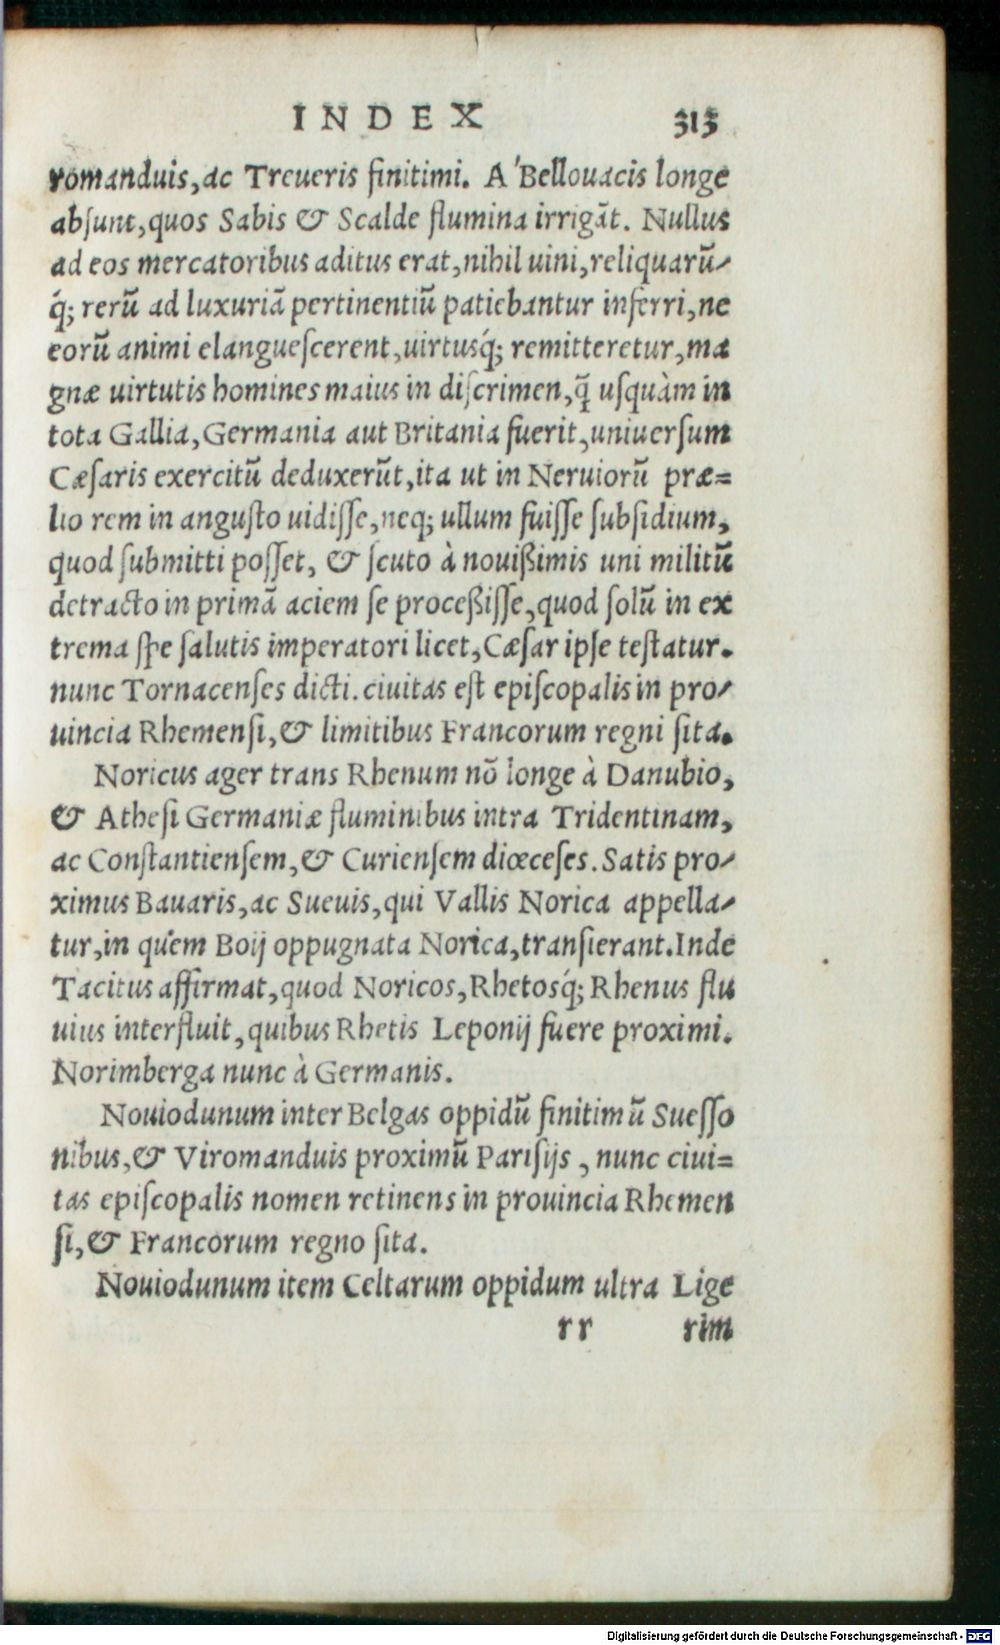 INDEX 313
romanduis, ac Treueris finitimi. A' Bellouacis longe
absunt, quos Sabis & Scalde flumina irrigāt. Nullus
ad eos mercatoribus aditus erat, nihil uini, reliquarū-
q́; rerū ad luxuriā pertinentiū patiebantur inferri, ne
eorū animi elanguescerent, uirtusq́; remitteretur, ma
gnæ uirtutis homines maius in discrimen, q̄ usquàm in
tota Gallia, Germania aut Britania fuerit, uniuersum
Cæsaris exercitū deduxerūt, ita ut in Neruiorū præ=
lio rem in angusto uidisse, neq; ullum fuisse subsidium,
quod submitti posset, & scuto à nouißimis uni militū
detracto in primā aciem se proceßisse, quod solū in ex
trema spe salutis imperatori licet, Cæsar ipse testatur.
nunc Tornacenses dicti. ciuitas est episcopalis in pro-
uincia Rhemensi, & limitibus Francorum regni sita.
Noricus ager trans Rhenum nō longe à Danubio,
& Athesi Germaniæ fluminibus intra Tridentinam,
ac Constantiensem, & Curiensem diœceses. Satis pro-
ximus Bauaris, ac Sueuis, qui Vallis Norica appella-
tur, in quem Boij oppugnata Norica, transierant. Inde
Tacitus affirmat, quod Noricos, Rhetosq́; Rhenus flu
uius interfluit, quibus Rhetis Leponij fuere proximi.
Norimberga nunc à Germanis.
Nouiodunum inter Belgas oppidū finitimū Suesso
nibus, & Viromanduis proximū Parisijs, nunc ciui=
tas episcopalis nomen retinens in prouincia Rhemen
si, & Francorum regno sita.
Nouiodunum item Celtarum oppidum ultra Lige
rr rim
Digitalisierung gefördert durch die Deutsche Forschungsgemeinschaft - DFG